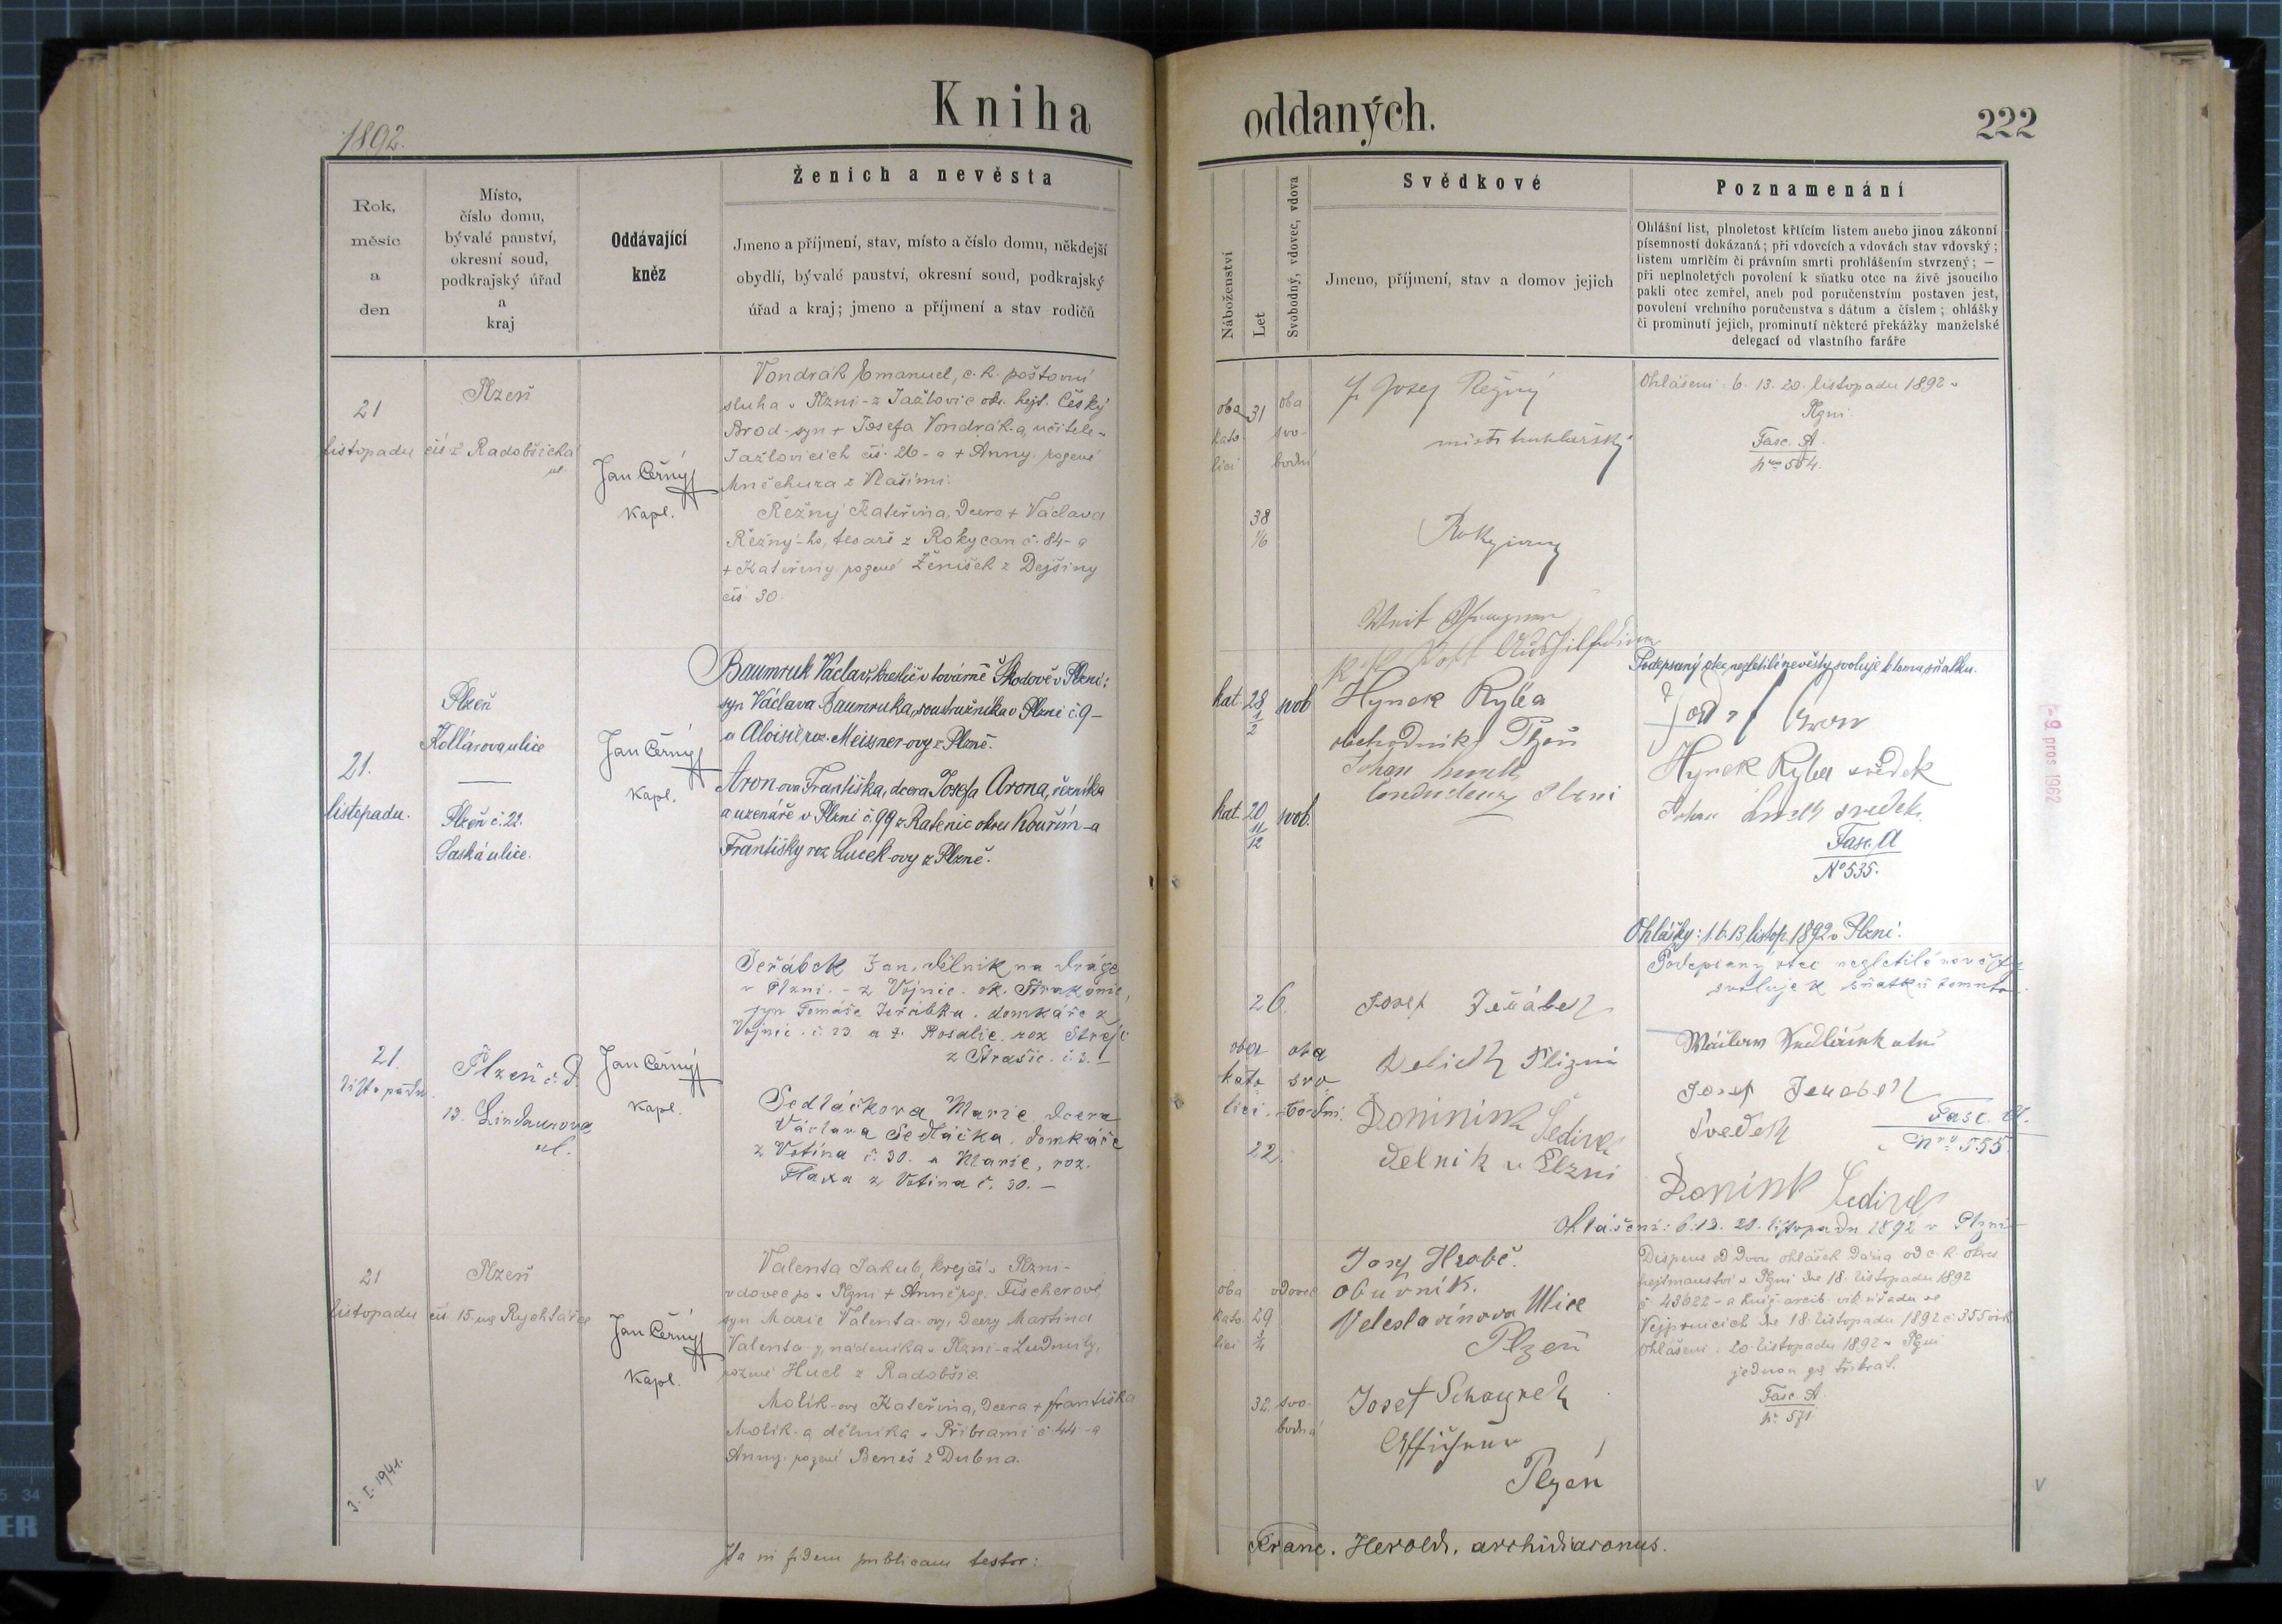 Kniha
oddaných.
1892.
222
Rok,
měsíc
a
den
Místo,
číslo domu,
bývalé panství,
okresní soud,
podkrajský úřad
a
kraj
Oddávající
kněz
Ženich a nevěsta
Jmeno a příjmení, stav, místo a číslo domu, někdejší
obydlí, bývalé panství, okresní soud, podkrajský
úřad a kraj; jmeno a příjmení a stav rodičů
Náboženství
Let
Svobodný, vdovec, vdova
Svědkové
Jmeno, příjmení, stav a domov jejich
Poznamenání
Ohlášní list, plnoletost křtícím listem anebo jinou zákonní
písemností dokázaná; při vdovcích a vdovách stav vdovský;
listem umrlčím či právním smrti prohlášením stvrzený; —
při neplnoletých povolení k sňatku otce na živě jsoucího
pakli otec zemřel, aneb pod poručenstvím postaven jest,
povolení vrchního poručenstva s dátum a číslem; ohlášky
či prominutí jejich, prominutí některé překážky manželské
delegací od vlastního faráře
21
listopadu
Plzeň
čís 2 Radobšická
ul.
Jan Černý
Kapl.
Vondrák Emanuel, c. k. poštovní
sluha v Plzni - z Jažlovic okr. hejt. Český
Brod - syn + Josefa Vondrák-a, učitele v
Jažlovicích čís. 26 - a + Anny, rozené
Mněchura z Vlašimi.
Řežný Kateřina, dcera + Václava
Řežný-ho, tesaře z Rokycan č. 84 - a
+ Kateřiny, rozené Ženíšek z Dejšiny
čís 30.
oba
kato
lící
31
38
1/6
oba
svo-
bodní
Josef Řežný
mistr truhlářský
Rokycany
Ohlášení: 6. 13. 20. listopadu 1892 v
Plzni.
Fasc. A.
554.
21.
listopadu.
Plzeň
Kollárova ulice
Plzeň č. 22.
Saská ulice.
Jan Černý
Kapl.
Baumruk Václav, kreslič v továrně Škodově v Plzni;
syn Václava Baumruka, soustružníka v Plzni č. 9 -
a Aloisie, roz. Meissner-ovy z Plzně.
Aron-ova Františka, dcera Josefa Arona, řezníka
a uzenáře v Plzni č. 99 z Ratenic okres Kouřim - a
Františky roz. Lucek-ovy z Plzně.
kat.
28
1
2
svob
kat.
20
11
12
svob.
Hynek Ryba
obchodník Plzeň
Johan
v Plzni
Podepsaný otec nezletilé nevěsty svoluje k tomu sňatku.
Josef Aron
Hynek Ryba svědek
Johan svedek
Fasc. A
No 535.
Ohlášky: 1. 6. 13. listop. 1892 v Plzni.
21.
listopadu.
Plzeň č. d.
13. Lindaurova
ul.
Jan Černý
Kapl.
Jeřábek Jan, dělník na dráze
v Plzni. - z Vojnic. ok. Strakonic,
syn Tomáše Jeřábka, domkáře z
Vojnic. č. 23. a + Rosalie. roz Strejc
z Strašic. č. 3. -
Sedláčkova Marie, dcera
Václava Sedláčka, domkáře
z Votína č. 30. a Marie, roz.
z Votína č. 30. -
26.
oba
kato
lící.
22.
oba
svo
bodní.
Josef Jeřábek
v Plzni
Dominik Šedivý
dělník v Plzni
Podepsaný otec nezletilé nevěsty
svoluje k sňatku tomuto.
Josef Jeřabek
svedek
Fasc. A.
Nro 555.
Dominik Šedivý
Ohlášení: 6. 13. 20. listopadu 1892 v Plzni
21
listopadu
Plzeň
čís. 15. na Rychtářce
Jan Černý
Kapl.
Valenta Jakub, krejčí v Plzni -
vdovec po v Plzni + Anně roz. Fischerové,
syn Marie Valenta-ovy, dcery Martina
Valenta-y, nádeníka v Plzni - a Ludmily,
rozené Hucl z Radobšic
Molík-ova Kateřina, dcera + Františka
Molík-a dělníka v Příbrami č. 44 - a
Anny, rozené Beneš z Dubna.
oba
kato
lící
29
32.
vdovec
svo-
bodná
Josef Hrabě.
obuvník.
Veleslavínova Ulice
Plzeň
Josef
Plzeň
Dispens od dvou ohlášek dána od c. k. okres
hejtmanství v Plzni dne 18. listopadu 1892
č. 43622 - a kníž. arcib. vik. úřadu ve
Vejprnicích dne 18. listopadu 1892 č. 355 vik
Ohlášení: 20. listopadu 1892 v Plzni
jednou za třikrát.
Fasc. A.
571
3. I. 1941.
- 9. pros 1962
Ita in fidem publicam testor:
Franc. Herold, archidiaconus.